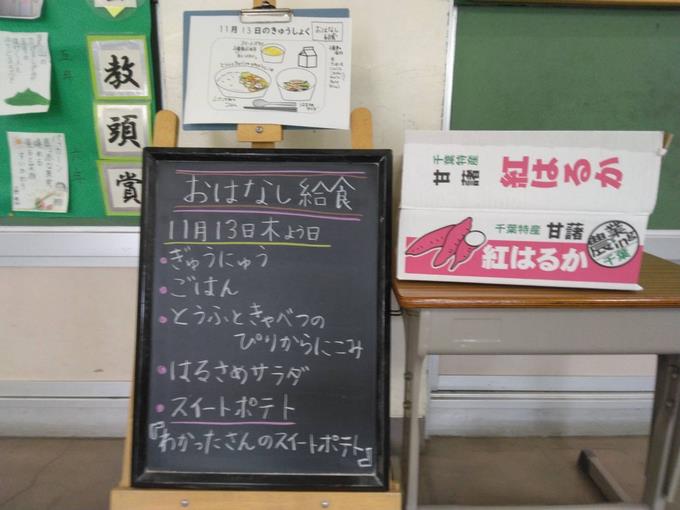 教
頭
賞
11月13日のきゅうしょく
おはなし
給食
おはなし給食
11月13日木よう日
・ぎゅうにゅう
・ごはん
・とうふときゃべつの
ぴりからにこみ
・はるさめサラダ
・スイートポテト
『わかったさんのスイートポテト』
千葉特産
甘藷
紅はるか
千葉特産 甘藷
紅はるか
農業ing
千葉